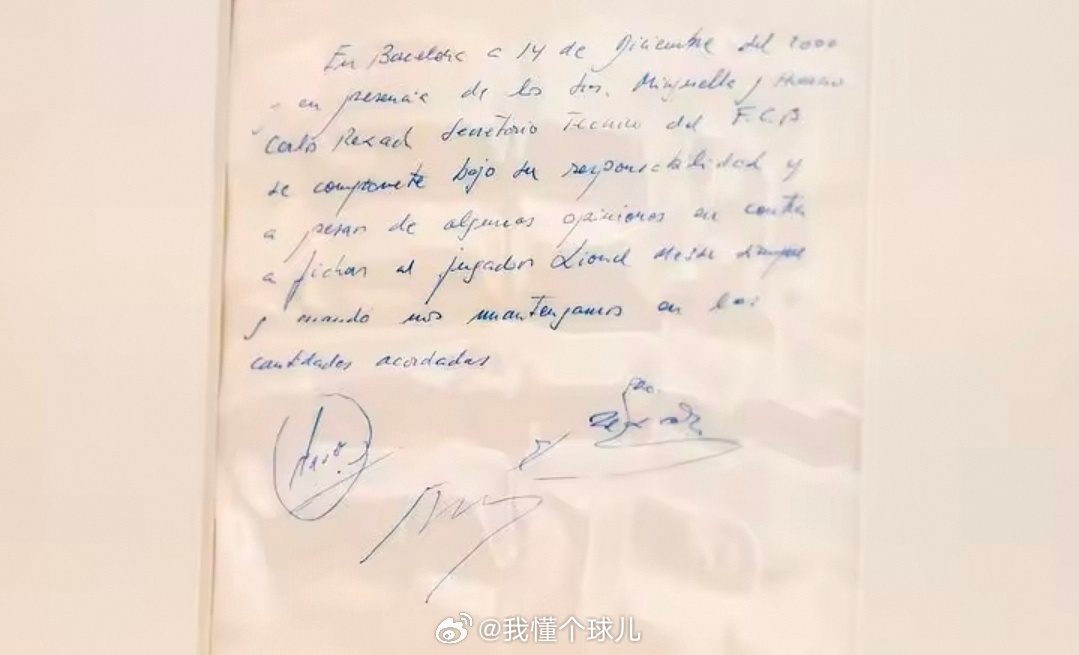 En Barcelona a 14 de Diciembre del 2000
y en presencia de los Srs. Minguella y Horacio
Carlos Rexach Secretario Tecnico del F.C.B
se compromete bajo su responsabilidad y
a pesar de algunas opiniones en contra
a fichar al jugador Lionel Messi siempre
y cuando nos mantengamos en las
cantidades acordadas
@我懂个球儿